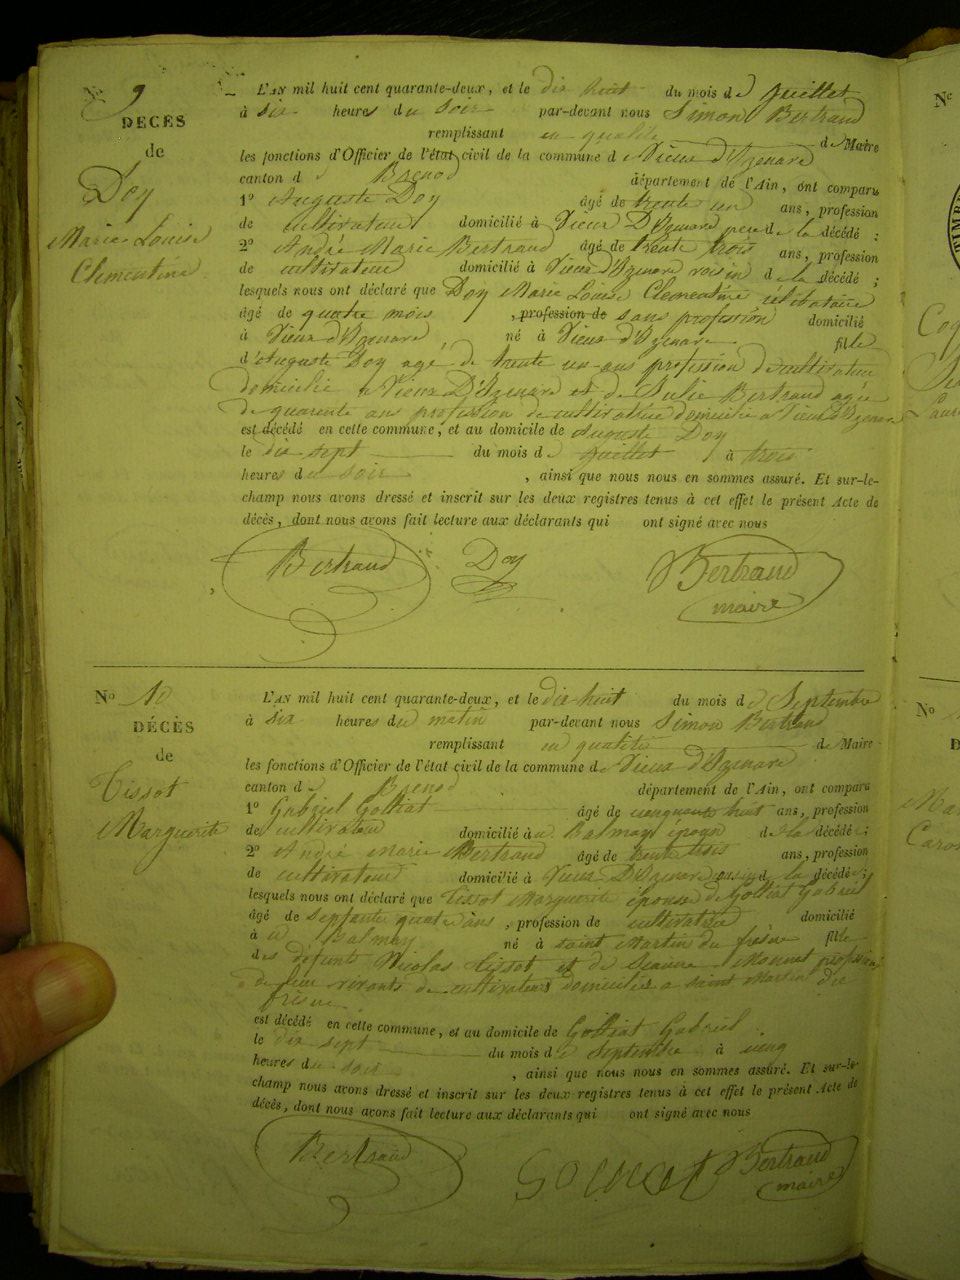 No 9
DECÈS
de
Doy
Marie Louise
Clementine
L'AN mil huit cent quarante-deux, et le dix huit du mois de Jueillet
à six heures du soir par-devant nous Simon Bertrand
remplissant en qualité de Maire
les fonctions d'Officier de l'état civil de la commune de Vieux d'Izenave
canton de Brenod département de l'Ain, ont comparu
1º Auguste Doy âgé de trente un ans, profession
de cultivateur domicilié à Vieux D'Izenave père de la décédé;
2º André Marie Bertrand âgé de trente trois ans, profession
de cultivateur domicilié à Vieux d'Izenave voisin de la décédé;
lesquels nous ont déclaré que Doy Marie Louise Clementine célibataire
âgé de quatre mois, profession de sans profession domicilié
à Vieux d'Izenave, né à Vieux d'Izenave fille
d'Auguste Doy agé de trente un ans profession de cultivateur
domicilié a Vieux D'Izenave et de Julie Bertrand agée
de quarente ans profession de cultivatrice domicilié a Vieux d'Izenave
est décédé en cette commune, et au domicile de Auguste Doy
le dix sept du mois de jueillet à trois
heures du soir, ainsi que nous nous en sommes assuré. Et sur-le-
champ nous avons dressé et inscrit sur les deux registres tenus à cet effet le présent Acte de
décès, dont nous avons fait lecture aux déclarants qui ont signé avec nous
Bertrand Doy Bertrand
maire
No 10
DÉCÈS
de
Tissot
Marguerite
L'AN mil huit cent quarante-deux, et le dix-huit du mois de Septembre
à six heures du matin par-devant nous Simon Bertrand
remplissant en qualité de Maire
les fonctions d'Officier de l'état civil de la commune de Vieux d'Izenave
canton de Brenod département de l'Ain, ont comparu
1º Gabriel Golliat âgé de cinquante huit ans, profession
de cultivateur domicilié à Balmay époux de la décédé;
2º André Marie Bertrand âgé de trente trois ans, profession
de cultivateur domicilié à Vieux D'Izenave voisin de la décédé;
lesquels nous ont déclaré que Tissot Marguerite épouse de Golliat Gabriel
âgé de septante quatre ans, profession de cultivatrice domicilié
à Balmay né à saint Martin du fresne fille
des défunts Nicolas Tissot et de Jeanne Monnet profession
de leur vivants de cultivateurs domiciliés a saint Martin du
fresne
est décédé en cette commune, et au domicile de Golliat Gabriel
le dix sept du mois de Septembre à cinq
heures du soir, ainsi que nous nous en sommes assuré. Et sur-le-
champ nous avons dressé et inscrit sur les deux registres tenus à cet effet le présent Acte de
décès, dont nous avons fait lecture aux déclarants qui ont signé avec nous
Bertrand Bertrand
maire